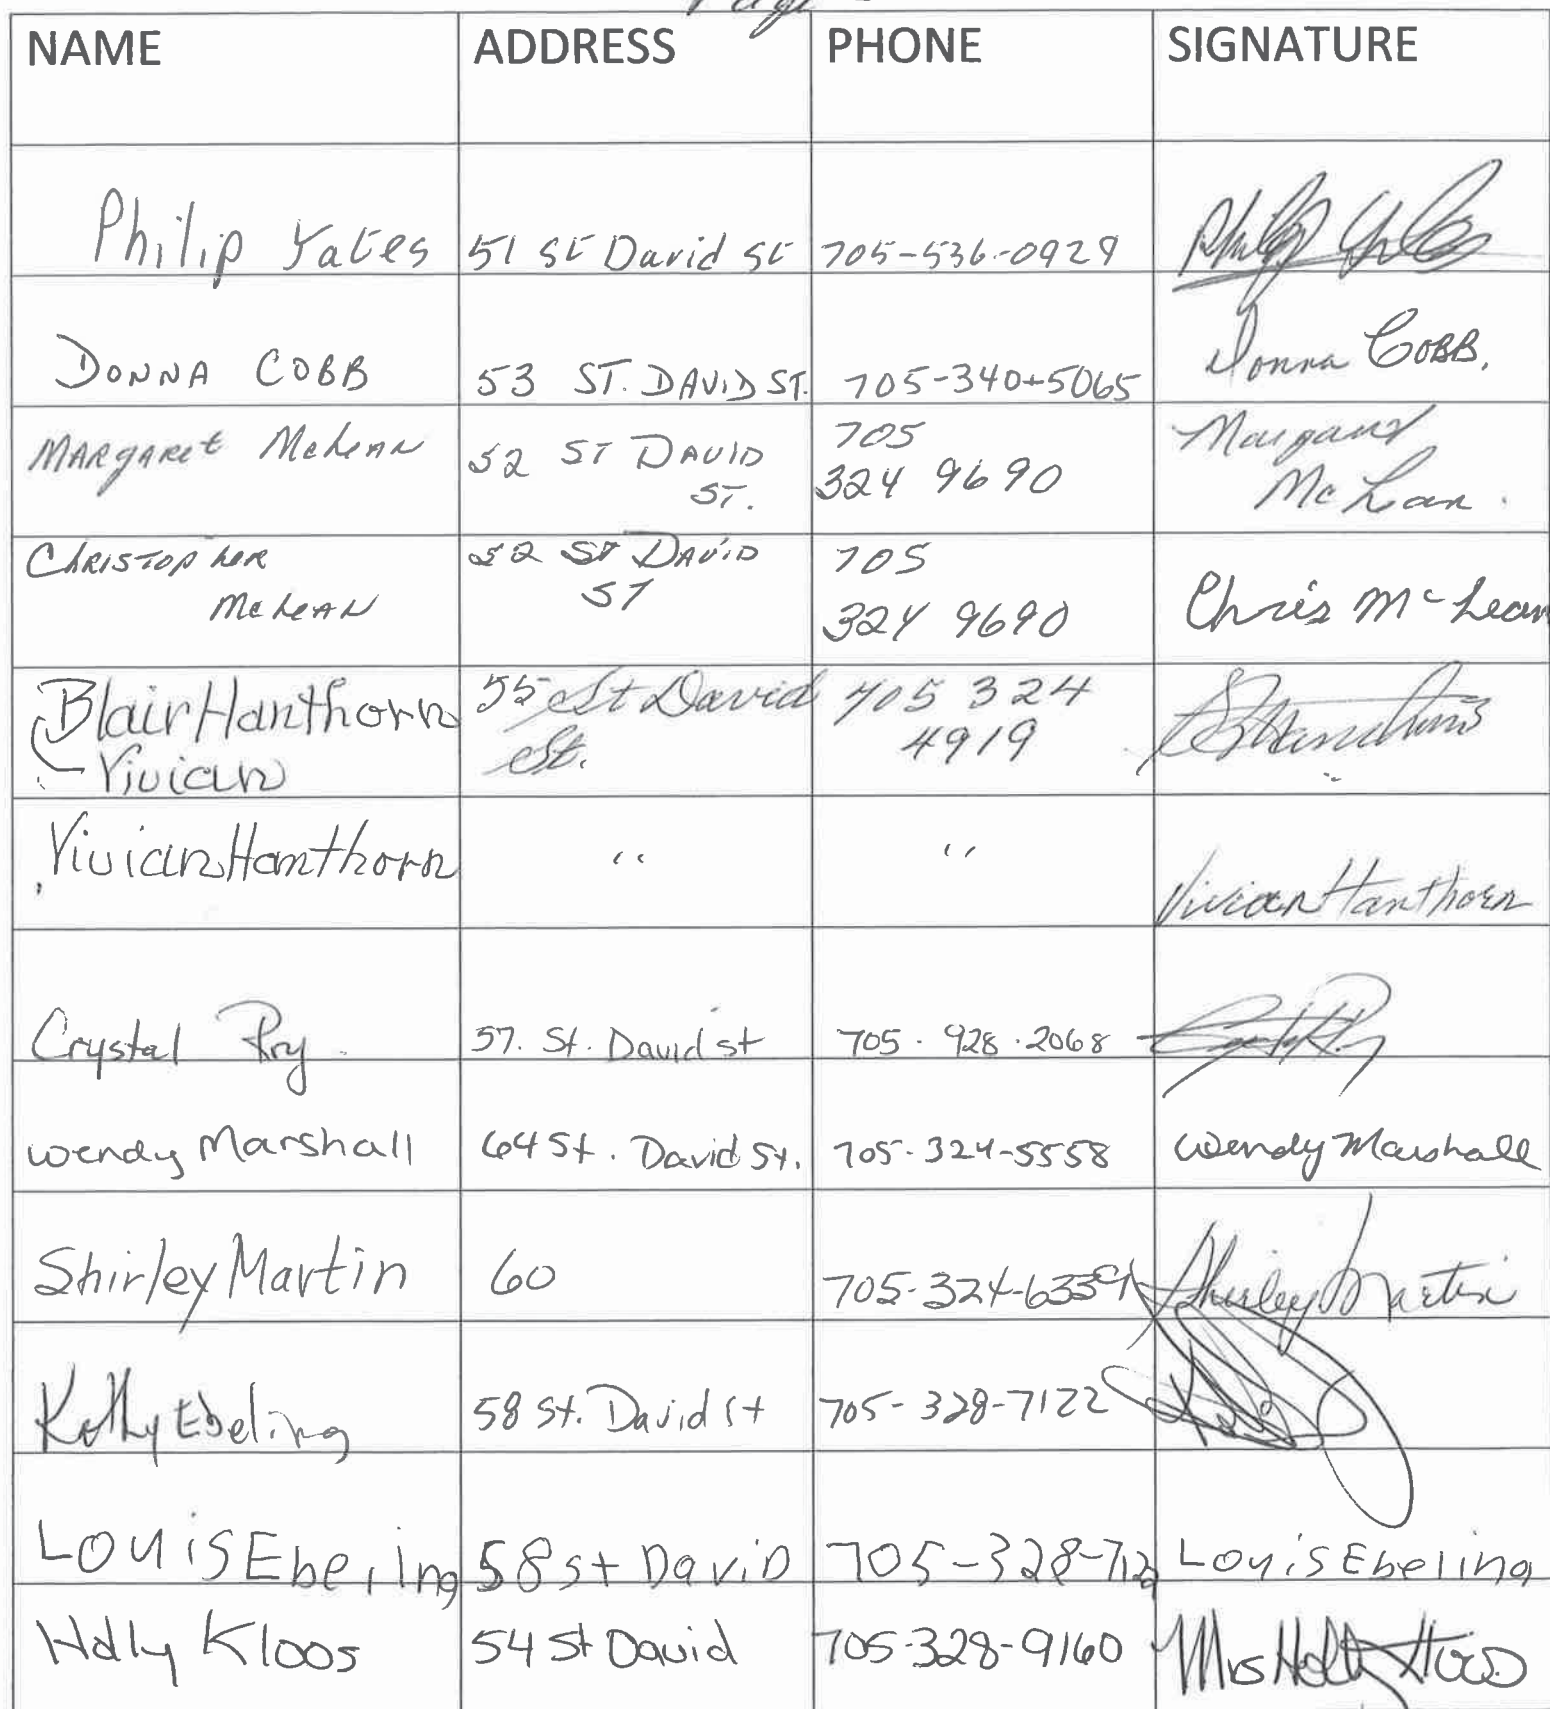 Page
NAME ADDRESS PHONE SIGNATURE
Philip Yates 51 St David St 705-536-0929 Philip Yates
DONNA COBB 53 ST. DAVID ST. 705-340-5065 Donna COBB.
MARGARET McLEAN 52 ST DAVID ST. 705 324 9690 Margaret McLean.
CHRISTOPHER McLEAN 52 ST DAVID ST 705 324 9690 Chris McLean
Blair Hanthorn Vivian 55 St David St. 705 324 4919
Vivian Hanthorn " " Vivian Hanthorn
Crystal Pry 57. St. David st 705.928.2068
wendy Marshall 64 St. David St. 705-324-5558 Wendy Marshall
Shirley Martin 60 705-324-6339 Shirley Martin
Kathy Ebeling 58 St. David St 705-328-7122
Louis Ebeling 58 St David 705-328-712 Louis Ebeling
Holly Kloos 54 St David 705-328-9160 Mrs Holly